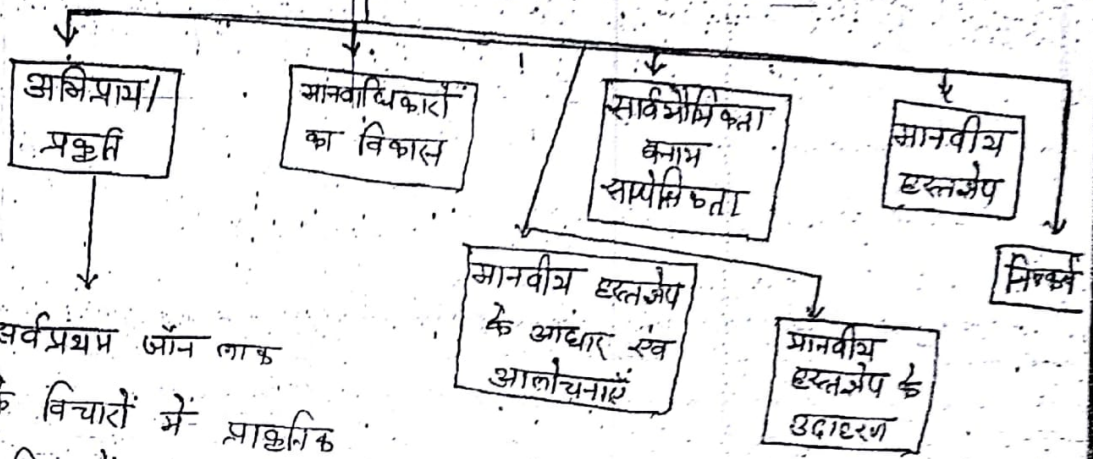 अभिप्राय/
प्रकृति
मानवाधिकारों
का विकास
सार्वभौमिकता
बनाम
सापेक्षिकता
मानवीय
हस्तक्षेप
निष्कर्ष
मानवीय हस्तक्षेप
के आधार एंव
आलोचनाएँ
मानवीय
हस्तक्षेप के
उदाहरण
सर्वप्रथम जॉन लाक
के विचारों में प्राकृतिक